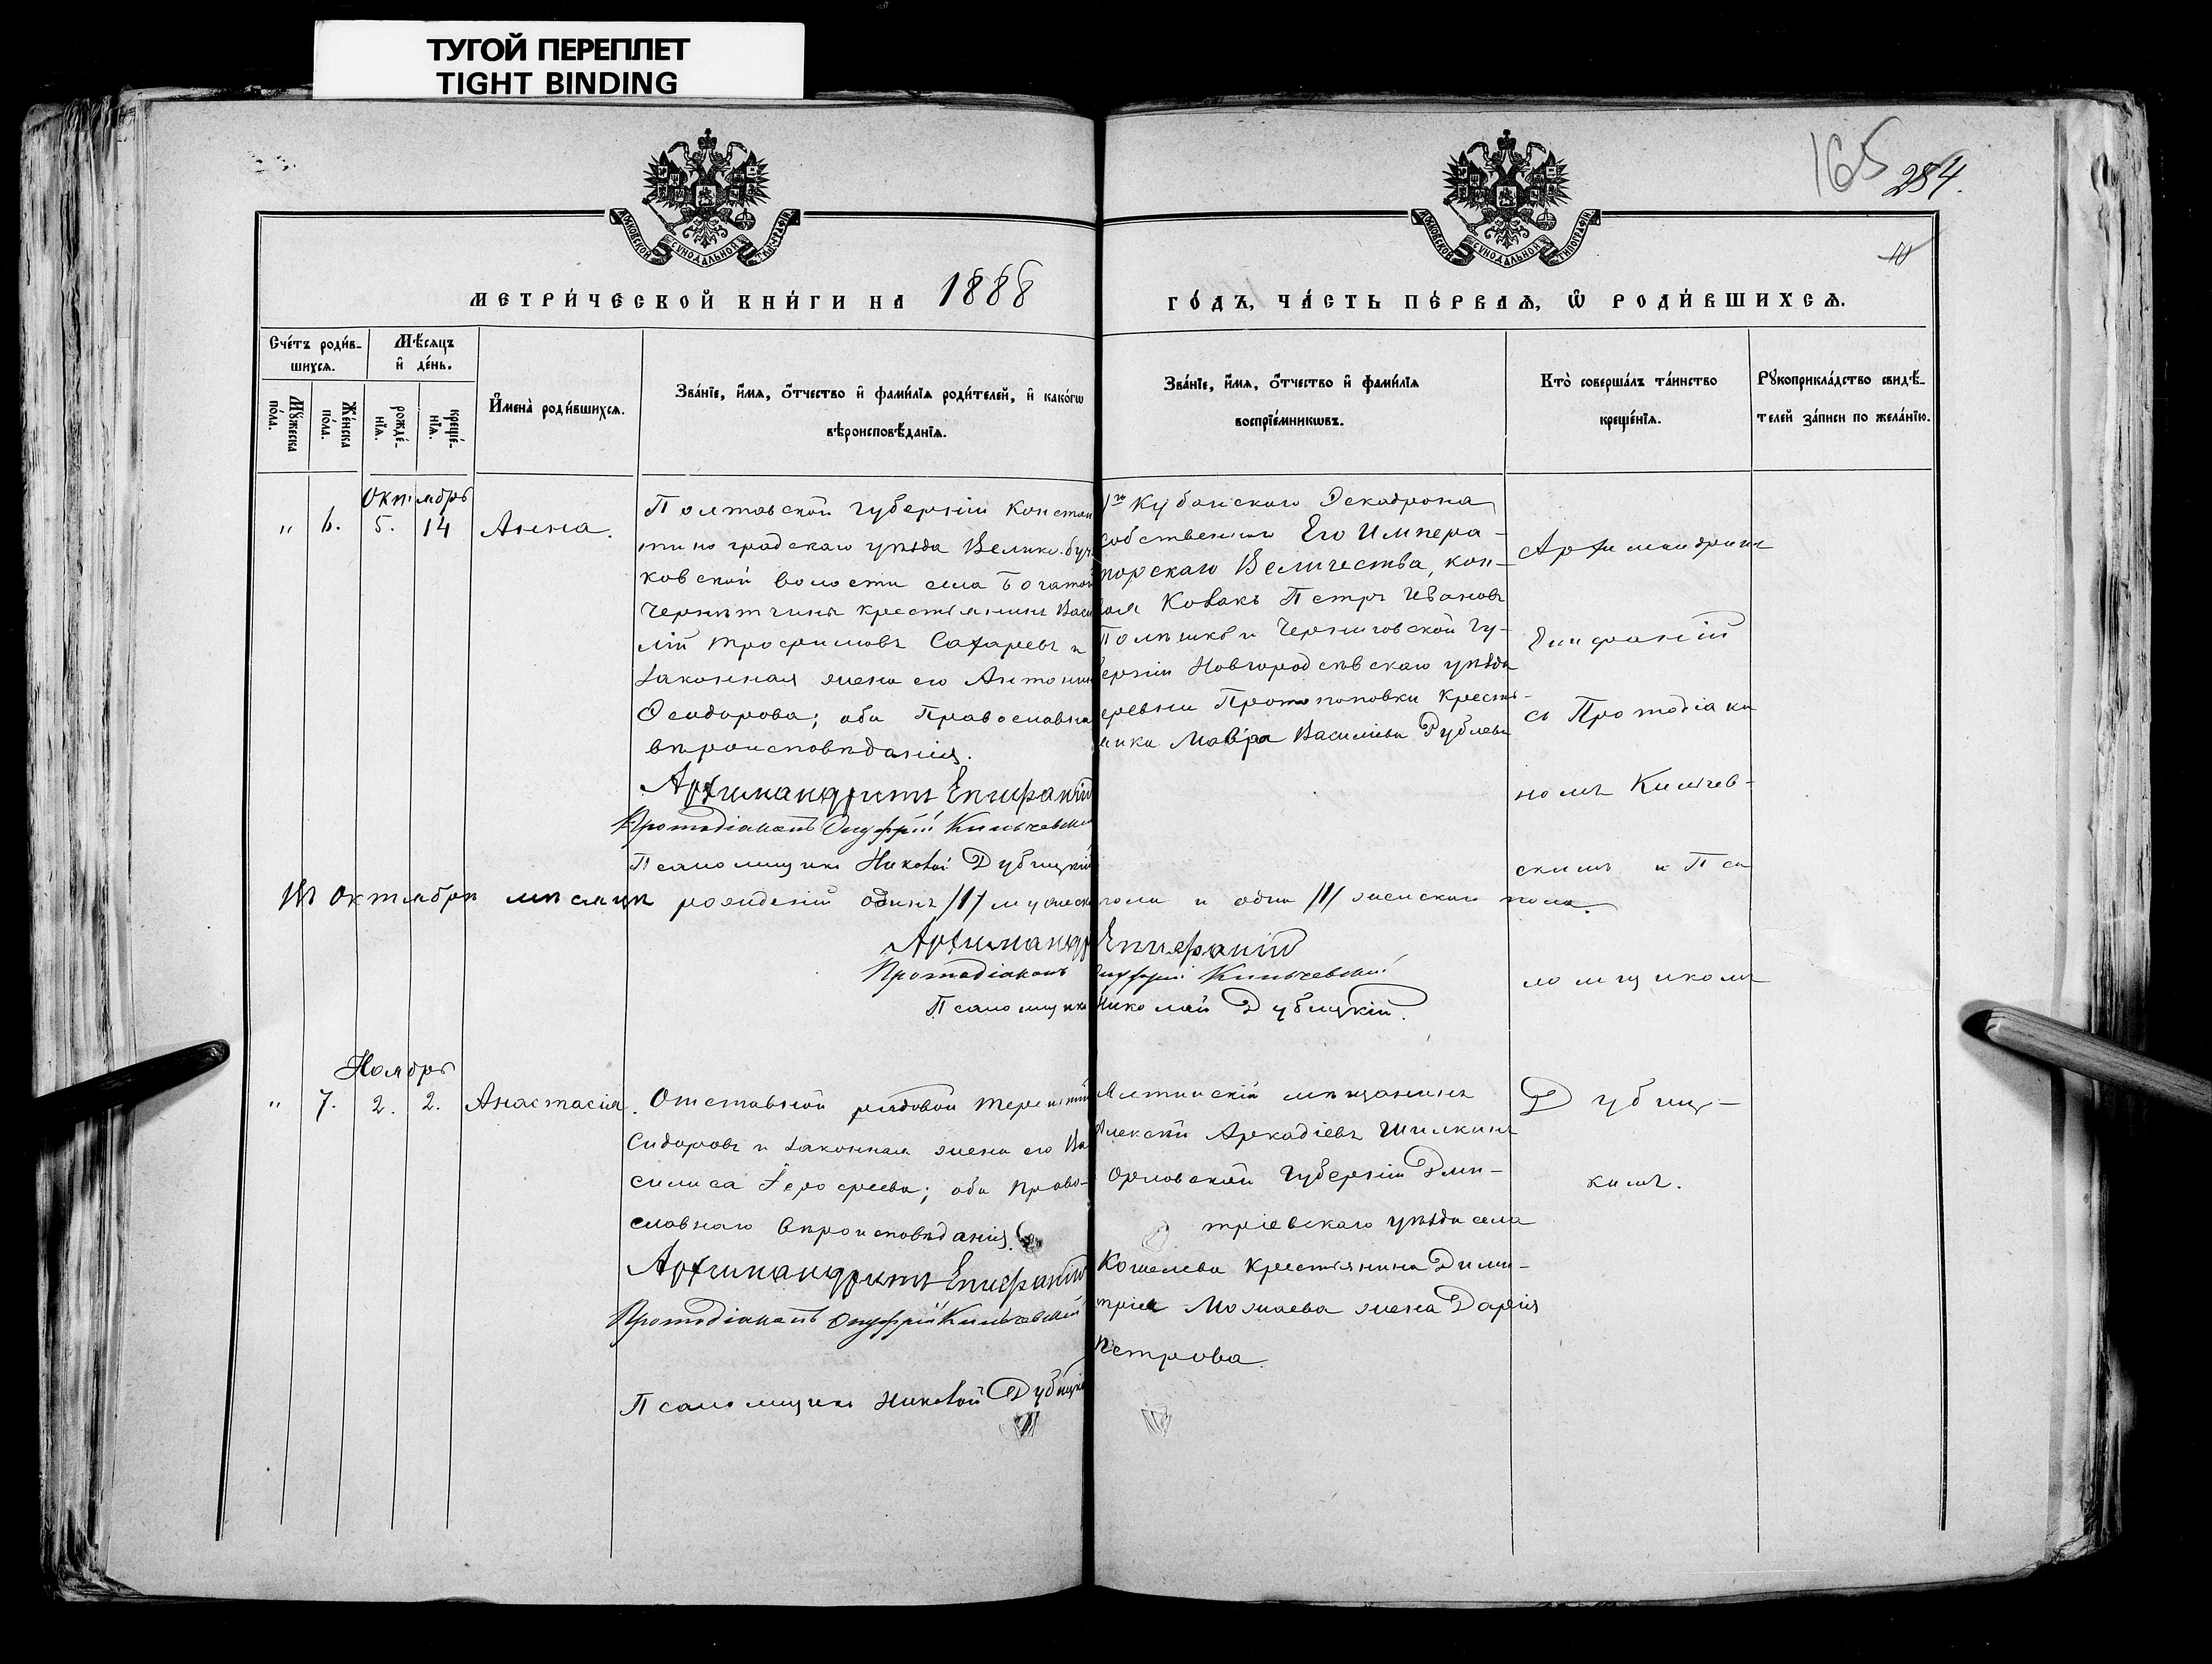 ТУГОЙ ПЕРЕПЛЕТ
TIGHT BINDING
165
284.
10
МОСКОВСКОЙ СѴНОДАЛЬНОЙ ТИПОГРАФІИ
МОСКОВСКОЙ СѴНОДАЛЬНОЙ ТИПОГРАФІИ
МЕТРИ́ЧЕСКОЙ КНИ́ГИ НА 1888
ГО́ДЪ, ЧА́СТЬ ПЕ́РВАѦ, Ѽ РОДИ́ВШИХСѦ.
Сче́тъ роди́в-
шихсѧ.
Мꙋ́жеска
по́ла.
Же́нска
по́ла.
Мѣ́сѧцъ
и҆ де́нь.
рожде́-
нїѧ.
креще́-
нїѧ.
И҆мена̀ роди́вшихсѧ.
Зва́нїе, и҆́мѧ, о҆́тчество и҆ фами́лїѧ роди́телей, и҆ како́гѡ
вѣроисповѣ́данїѧ.
Зва́нїе, и҆́мѧ, о҆́тчество и҆ фами́лїѧ
воспрїе́мникѡвъ.
Кто̀ соверша́лъ та́инство
креще́нїѧ.
Рꙋкоприкла́дство свидѣ́-
телей за́писи по жела́нїю.
Октябрь
" 6. 5. 14 Анна.
Полтавской губерніи Констан
тиноградскаго уѣзда Велико-буч
ковской волости села Богатой
Чернетчины крестьянинъ Васи
лій Трофимовъ Сахаревъ и
законная жена его Антони
Ѳеодорова; оба Православна
вѣроисповѣданія.
Архимандритъ Епифаній
Протодіаконъ Онуфрій Кильчевскі
Псаломщикъ Николай Дубицкій
1го Кубанскаго Эскадрона
собственнаго Его Импера-
торскаго Величества, кон-
воя Козакъ Петръ Ивановъ
и Черниговской гу-
берніи Новгородсѣвскаго уѣзда
еревни Протопоповки Кресть-
янка Мавра Василіева Рублева
Архимандритъ
Епифаній
съ Протодіако
номъ Кильчев-
скимъ и Пса
ломщикомъ
Дубиц-
кимъ.
Въ Октябрѣ мѣсяцѣ рожденій одинъ /1/ мужеска пола и одна /1/ женскаго пола.
Архимандр Епифаній
Протодіаконъ Онуфрій Кильчевскій
Псаломщикъ Николай Дубицкій.
Ноябрь
" 7. 2. 2. Анастасія.
Отставной рядовой Терентій
Сидоровъ и законная жена его Ва
силиса Ѳеофеева; оба Право-
славнаго вѣроисповѣданія.
Архимандритъ Епифаній
Протодіаконъ Онуфрій Кильчевскій
Псаломщикъ Николай Дубицкі
Ялтинскій мѣщанинъ
Алексѣй Аркадіевъ Шилкинъ
Орловской губерніи Дми-
тріевскаго уѣзда села
Кошелева Крестьянина Дими-
трія Можаева жена Дарія
Петрова.